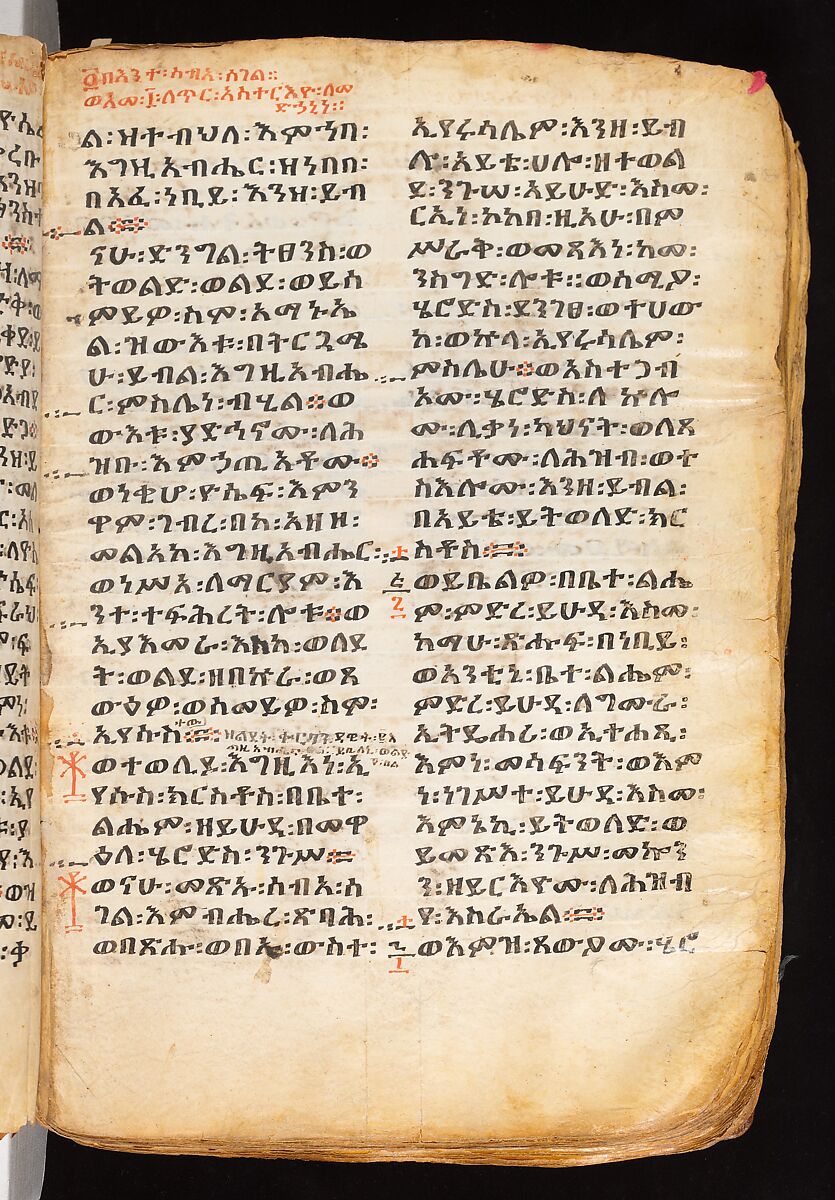 ፩በእንተ፡ሰብአ፡ሰገል።
ል፡ዘተብህለ፡እምኀበ፡
እግዚአብሔር፡ዘነበበ፡
በአፈ፡ነቢይ፡እንዘ፡ይብ
ል፨
ናሁ፡ድንግል፡ትፀንስ፡ወ
ትወልድ፡ወልደ፡ወይሰ
ምይዎ፡ስሞ፡አማኑኤ
ል፡ዝውእቱ፡በትርጓሜ
ሁ፡ይብል፡እግዚአብሔ
ር፡ምስሌነ፡ብሂል፨ወ
ውእቱ፡ያድኅኖሙ፡ለሕ
ዝቡ፡እምኃጢአቶሙ፨
ወነቂሆ፡ዮሴፍ፡እምን
ዋም፡ገብረ፡በከ፡አዘዞ፡
መልአከ፡እግዚአብሔር፡
ወነሥአ፡ለማርያም፡እ
ንተ፡ተፍሕረት፡ሎቱ፨ወ
ኢያእመራ፡እስከ፡ወለደ
ት፡ወልደ፡ዘበኵራ፡ወጸ
ውዕዎ፡ወሰመይዎ፡ስሞ፡
ኢየሱስ፨
ወተወሊዶ፡እግዚእነ፡ኢ
የሱስ፡ክርስቶስ፡በቤተ፡
ልሔም፡ዘይሁዳ፡በመዋ
ዕለ፡ሄሮድስ፡ንጉሥ፨
ወናሁ፡መጽኡ፡ሰብአ፡ሰ
ገል፡እምብሔረ፡ጽባሕ፡
ወበጽሑ፡ወበኡ፡ውስተ፡
ኢየሩሳሌም፡እንዘ፡ይብ
ሉ፡አይቴ፡ሀሎ፡ዘተወል
ደ፡ንጉሠ፡አይሁድ፡እስመ፡
ርኢነ፡ኮከበ፡ዚአሁ፡በም
ሥራቅ፡ወመጻእነ፡ከመ፡
ንስግድ፡ሎቱ፡፡ወሰሚዖ፡
ሄሮድስ፡ደንገፀ፡ወተሀው
ከ፡ወኵላ፡ኢየሩሳሌም፡
ምስሌሁ፨ወአስተጋብ
ኦሙ፡ሄሮድስ፡ለኵሎ
ሙ፡ሊቃነ፡ካህናት፡ወለጸ
ሐፍቶሙ፡ለሕዝብ፡ወተ
ስእሎሙ፡እንዘ፡ይብል፡
በአይቴ፡ይትወለድ፡ክር
ስቶስ፨
ወይቤልዎ፡በቤተ፡ልሔ
ም፡ምድረ፡ይሁዳ፡እስመ፡
ከማሁ፡ጽሑፍ፡በነቢይ፡
ወአንቲኒ፡ቤተ፡ልሔም፡
ምድረ፡ይሁዳ፡ለግሙራ፡
ኢትዴሐሪ፡ወኢተሐጺ፡
እምነ፡መሳፍንት፡ወእም
ነ፡ነገሥተ፡ይሁዳ፡እስመ፡
እምኔኪ፡ይትወለድ፡ወ
ይመጽእ፡ንጉሥ፡መኰን
ን፡ዘይርእዮሙ፡ለሕዝብ
የ፡እስራኤል፨
ወእምዝ፡ጸውዖሙ፡ሄሮ